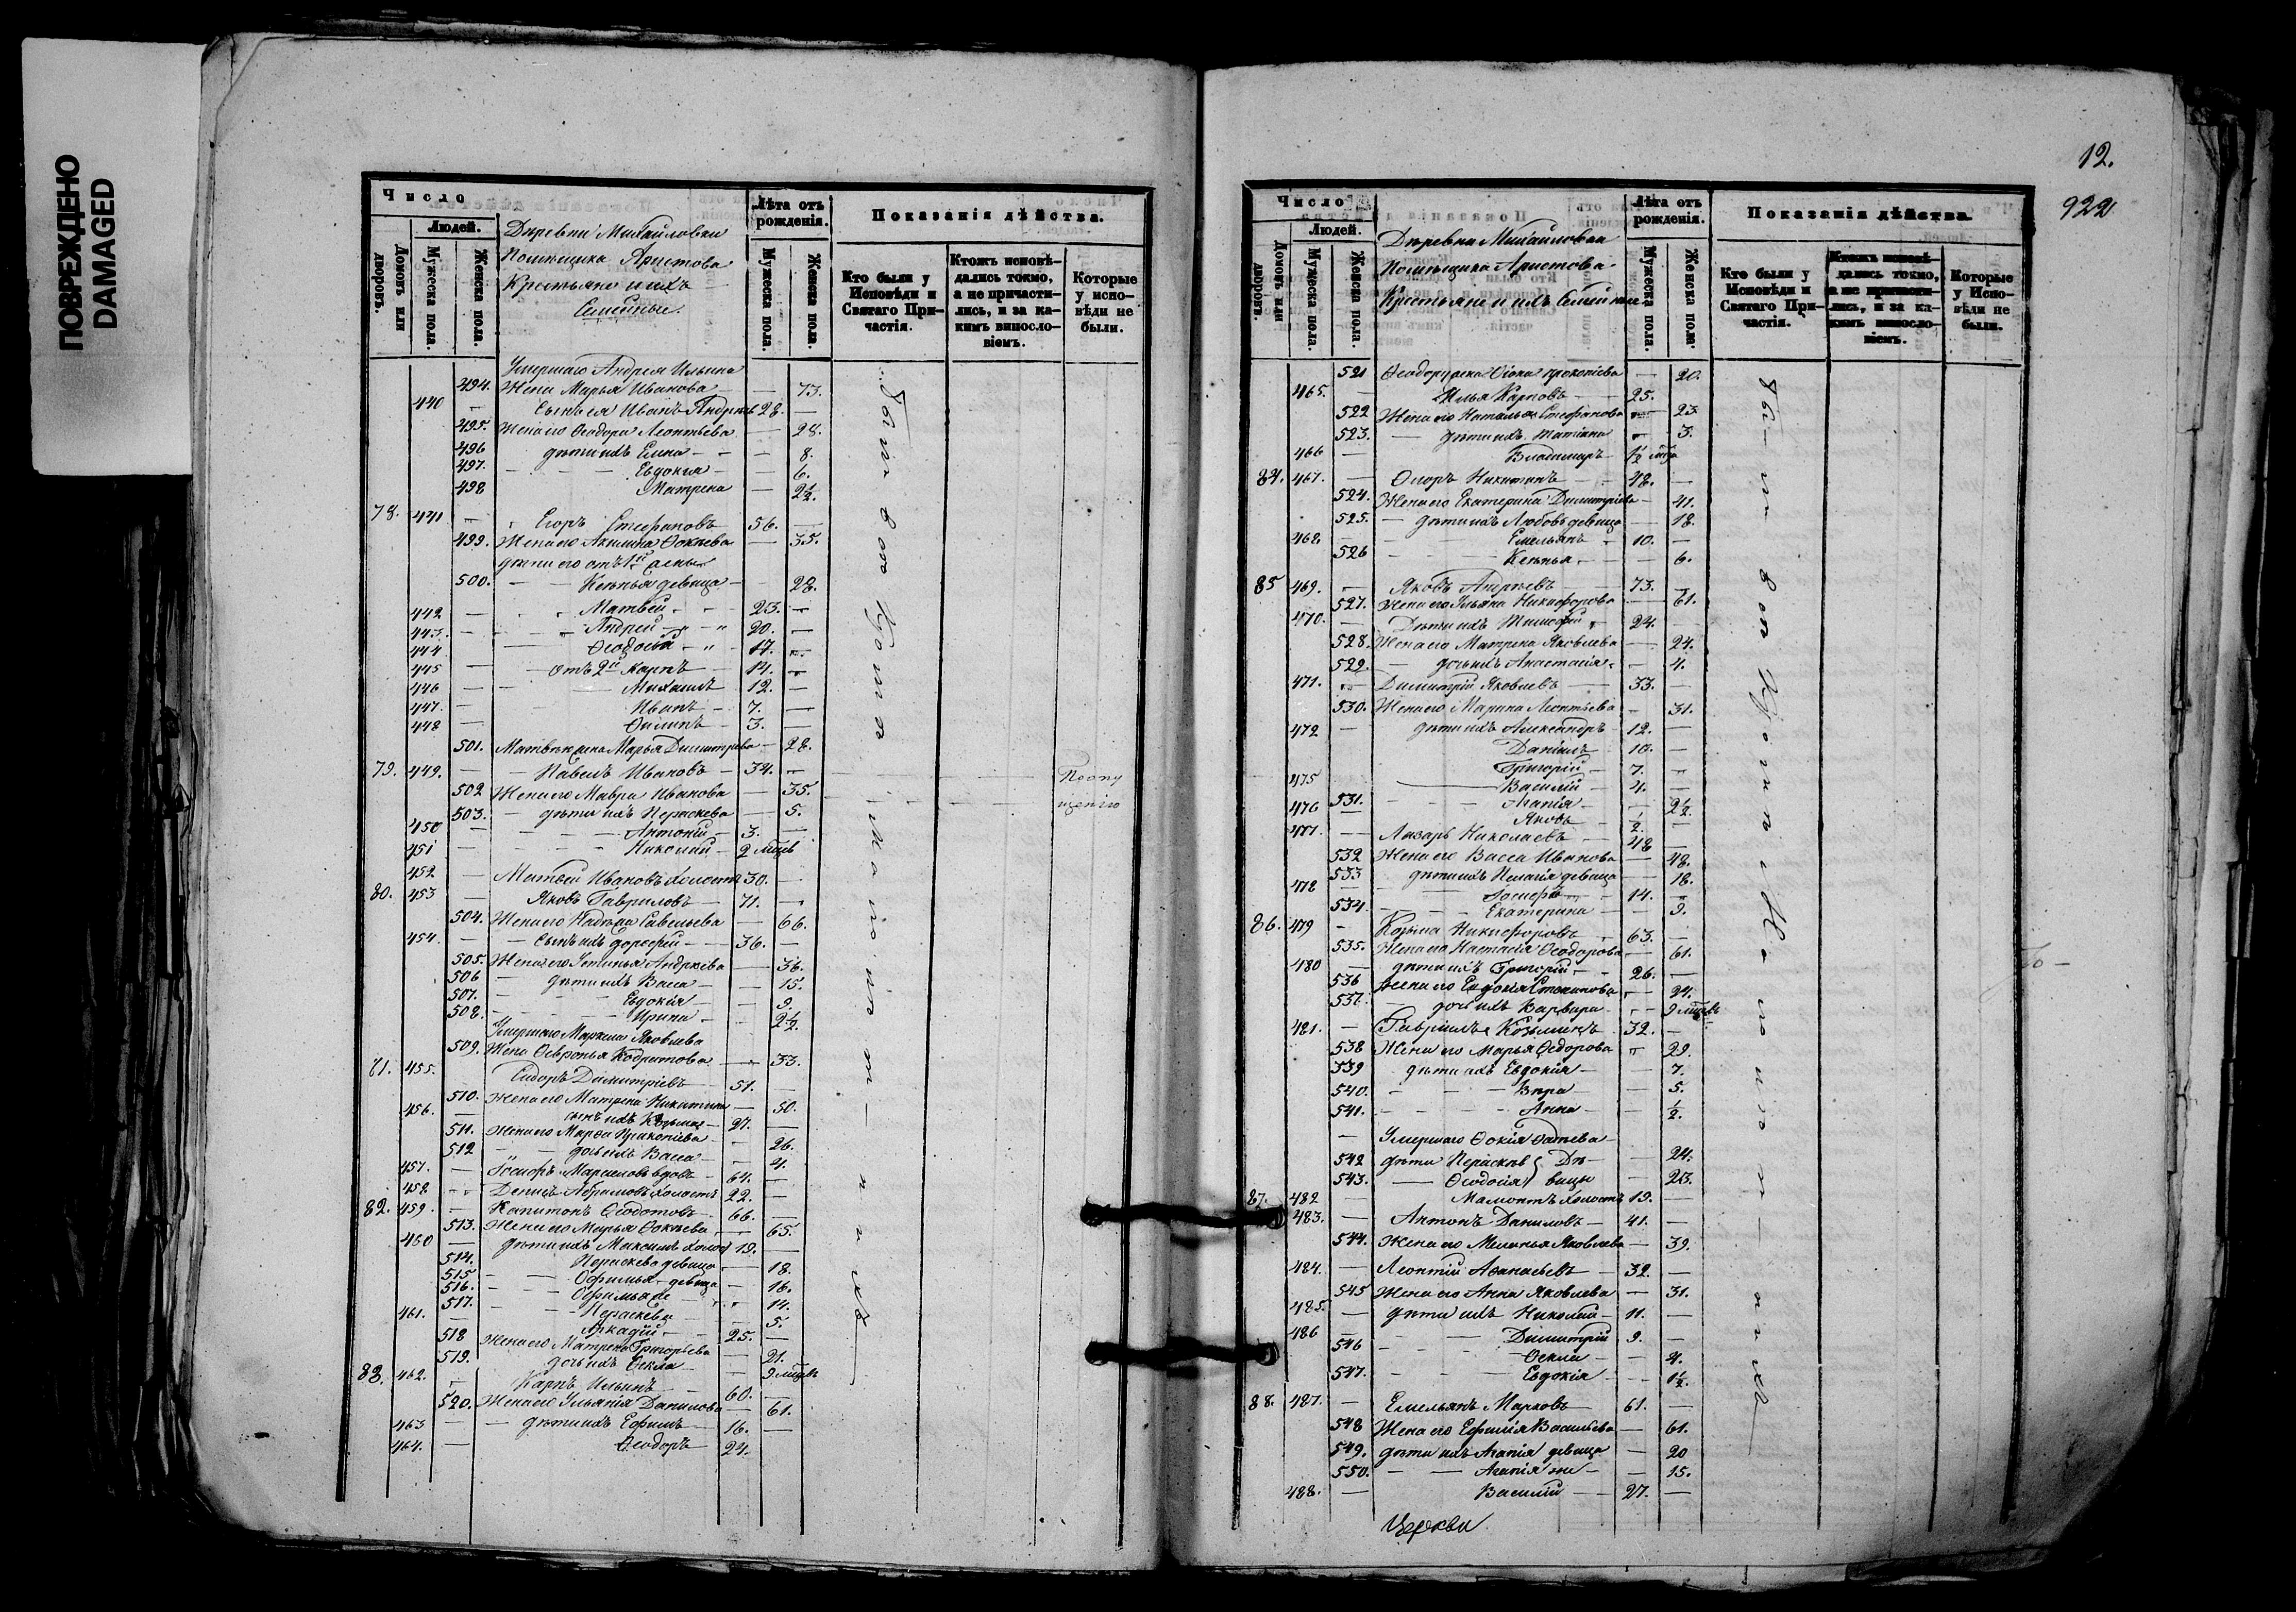 ПОВРЕЖДЕНО
DAMAGED
Число
Людей.
Домовъ или дворовъ.
Мужеска пола.
Женска пола.
Деревни Михайловки
Помѣщика Аристова
Крестьяне и ихъ
Семейные.
Лѣта отъ рожденія.
Мужеска пола.
Женска пола.
Показанія дѣйства.
Кто были у Исповѣди и Святаго Причастія.
Ктожъ исповѣдались токмо, а не причастились, и за какимъ винословіемъ.
Которые у исповѣди не были.
Умершаго Андрея Ильина
494. Жена Марья Иванова — 73.
440 — Сынъ ея Иванъ Андреевъ 28. —
495. Жена его Ѳеодора Леонтьева — 28.
496 дѣти ихъ Елена — 8.
497. — Евдокия — 6.
498 Матрена — 2½.
78. 441 — Егоръ Стефановъ 56. —
499. Жена его Акилина Фокиева — 35.
дѣти его отъ 1й жены
500. — Ксенья девица — 28.
442 — Матвей — 23. —
443. — Андрей — 20. —
444 — Ѳеодосій — 17. —
445 — отъ 2й Карпъ — 14. —
446 — Михаилъ — 12. —
447. — Иванъ — 7. —
448 — Филипъ — 3. —
501. Матвея жена Марья Димитриева — 28.
79. 449. — Павелъ Ивановъ — 34. —
502 Жена его Мавра Иванова — 35.
503. — дѣти ихъ Параскева — 5.
450 — Антоній 3. —
451 — Николай — 2 мѣсц
452 — Матвей Ивановъ холостъ 30. —
80. 453 — Яковъ Гавриловъ — 71. —
504. Жена его Надежда Савельева — 66.
454. — Сынъ ихъ Дорофей — 36. —
505. Жена его Устинья Андреева — 36.
506 — дѣти ихъ Васса — 15.
507. — Евдокія — 9.
508. — Ирина — 2½.
Умершаго Маркела Яковлева
509. Жена Февронья Кодратова — 33.
81. 455. Сидоръ Димитріевъ 51. —
510. Жена его Матрена Никитина — 50.
456. — сынъ ихъ Козьма — 27. —
511. Жена его Марфа Прокопіева — 26.
512 — дочь ихъ Васса — 4.
457. — Іосифъ Маркеловъ вдовъ — 64. —
458 — Денисъ Абрамовъ холостъ 22. —
82. 459. — Капитонъ Ѳеодотовъ 66. —
513. Жена его Марья Фокиева — 65.
460 — дѣти ихъ Максимъ холос 19. —
514. Параскева девица — 18.
515 — Офимья девица — 16.
516. — Офимья же — 14.
517. — Параскева — 5.
461. Аркадій — 25. —
518 Жена его Матрена Григорьева — 21.
519. дочь ихъ Фекла — 9 мѣсцъ
83. 462. — Карпъ Ильинъ 60. —
520. Жена его Ульянія Данилова — 61.
463 — дѣти ихъ Ефимъ — 16. —
464. — Ѳеодоръ — 24.
Были
Пропу
щенію
12.
922
Число
Людей.
Домовъ или дворовъ.
Мужеска пола.
Женска пола.
Деревни Михайловки
Помѣщика Аристова
Крестьяне и ихъ Семейные
Лѣта отъ рожденія.
Мужеска пола.
Женска пола.
Показанія дѣйства.
Кто были у Исповѣди и Святаго Причастія.
Ктожъ исповѣдались токмо, а не причастились, и за какимъ винословіемъ.
Которые у Исповѣди не были.
521 Ѳеодора жена Прокопіева — 20.
465. — Илья Карповъ — 25.
522 Жена его Наталья Стефанова — 23
523. — дѣти ихъ Татіана — 3.
466 — Владимиръ — 1½ мѣсца
84. 467. — Никитинъ — 48. —
524. Жена его Екатерина Димитріева — 41.
525. — дѣти ихъ Любовь девица — 18.
468. — Емельянъ — 10. —
526 — Ксенья — 6.
85 469. — Яковъ Андреевъ — 73. —
527. Жена его Ульяна Никифорова — 61.
470. — Дѣти ихъ Тимофей 24. —
528. Жена его Матрена Яковлева — 24.
529. — дочь ихъ Анастасія — 4.
471. — Димитрій Яковлевъ — 33. —
530. Жена его Марина Леонтьева — 31.
472 — дѣти ихъ Александръ 12. —
Даніилъ 10. —
Григорій — 7. —
475 — Василій — 4. —
531. — Агапія — 2½.
476 — Яковъ — ½. —
477. — Лазарь Николаевъ — 48 —
532 Жена его Васса Иванова — 48.
533 дѣти ихъ Пелагія девица — 18.
478 — Іосифъ — 14. —
534. — Екатерина — 9.
86. 479 — Козьма Никифоровъ — 63. —
535. Жена его Настасія Ѳеодорова — 61.
480 — дѣти ихъ Григорій — 26. —
536 Жена его Евдокія Степанова — 24.
537. — дочь ихъ Варвара — 9 мѣсцъ
481. — Гавріилъ Козьминъ 32. —
538 Жена его Марья Федорова — 29.
539 дѣти ихъ Евдокія — 7.
540. — Вера — 5.
541. — Анна — ½.
Умершаго Фокія Фатеева
542 дѣти Параскев Де — 24.
543. — Феодосія вицы — 23.
87. 482 — Мамонтъ холостъ 19. —
483. — Антонъ Даниловъ — 41. —
544. Жена его Меланья Яковлева — 39.
484. — Леонтій Афанасьевъ 32. —
545 Жена его Анна Яковлева — 31.
485. — дѣти ихъ Николай — 11. —
486 — Димитрій 9. —
546 — Фекла — 4.
547. — Евдокія — 1½.
88. 487. — Емельянъ Марковъ 61. —
548 Жена его Ефимія Васильева — 61.
549. дѣти ихъ Агапія девица — 20
550. — Агапія же — 15.
488. — Василій — 27. —
Церкви